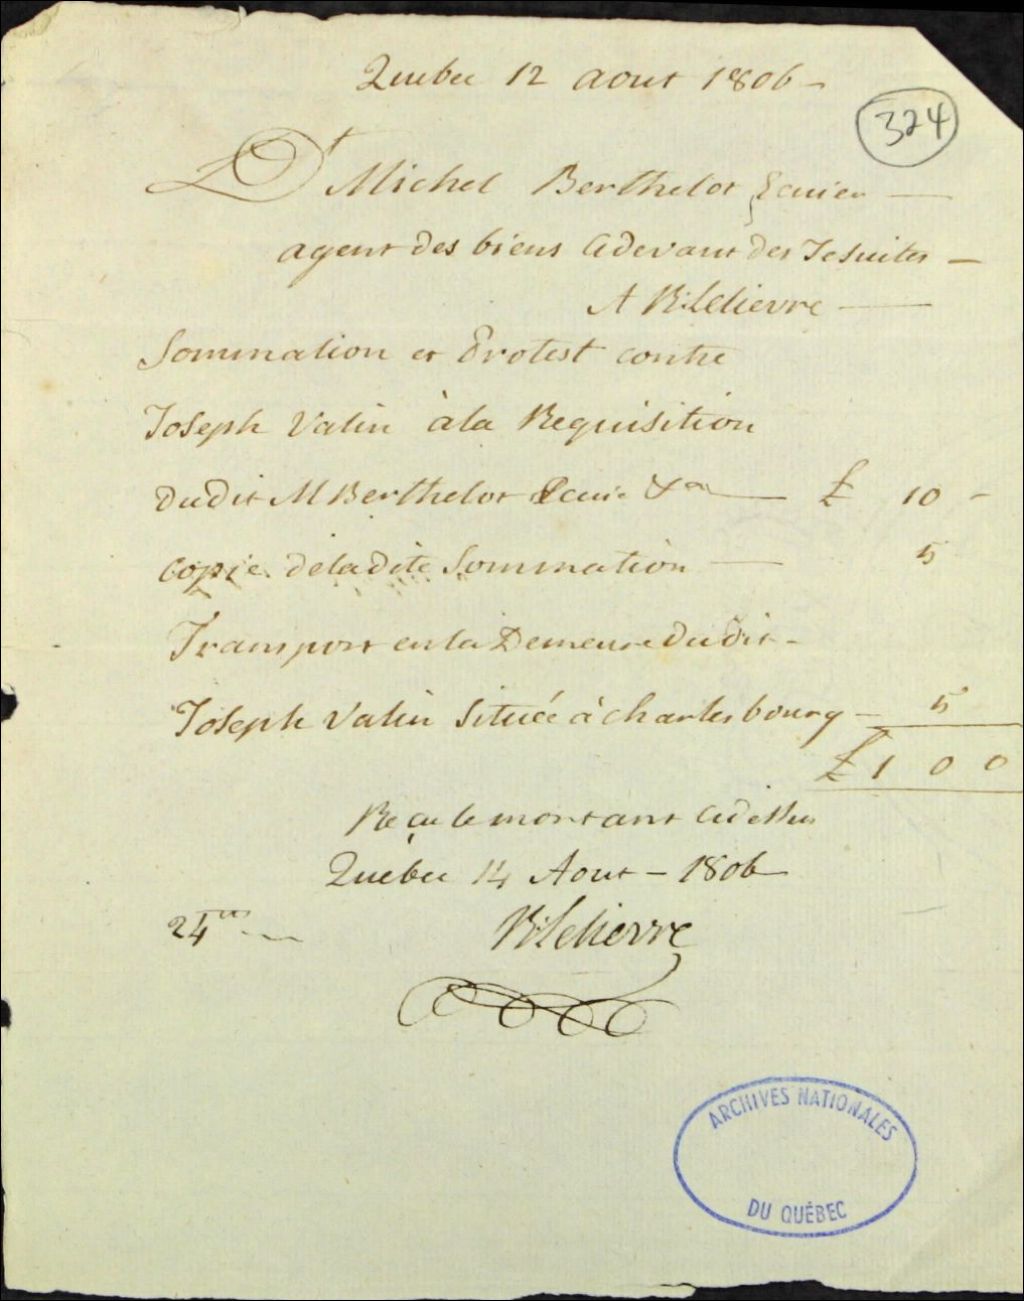 Quebec 12 aout 1806 -
324
Dt Michel Berthelot Ecuier —
agent des biens Cidevant des Jesuites —
A R: Lelievre —
Sommation et Protest contre
Joseph Valin à la Requisition
Du Dit M Berthelot Ecuie &ca — £ 10 -
Copie de la dite Sommation — 5
Transport en la Demeure Du Dit -
Joseph Valin Située à Charlesbourg — 5
£ 1 0 0
Reçu le montant Cidessus
Québec 14 Aout - 1806
24
R: Lelievre
ARCHIVES NATIONALES
DU QUÉBEC